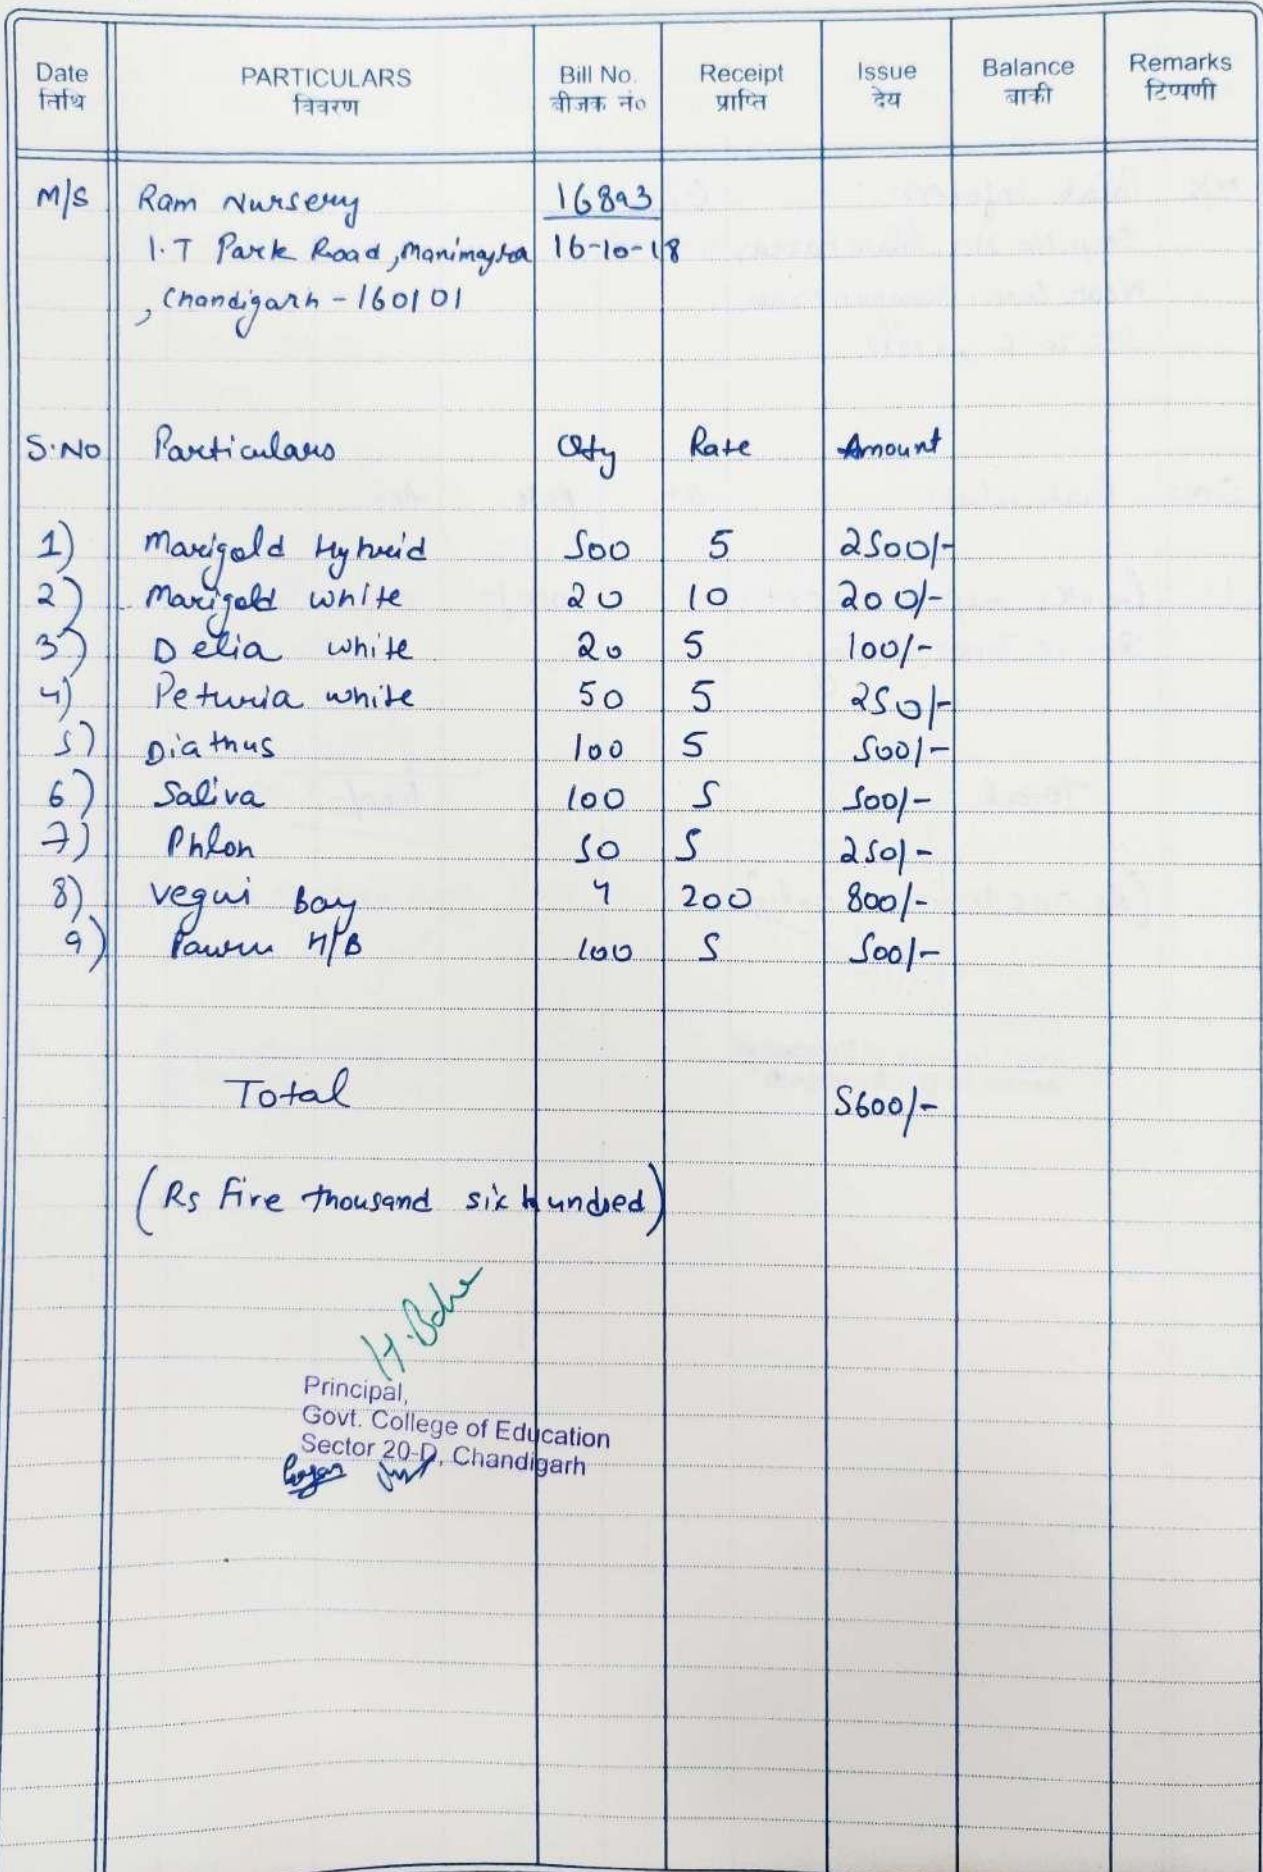 Date PARTICULARS Bill No. Receipt Issue Balance Remarks
तिथि विवरण बीजक नं० प्राप्ति देय बाकी टिप्पणी
M/S Ram Nursery 16893
I.T Park Road, Manimajra 16-10-18
, Chandigarh - 160101
S.No Particulars Qty Rate Amount
1) Marigold Hybreid 500 5 2500/-
2) Marigold white 20 10 200/-
3) Delia white 20 5 100/-
4) Peturia white 50 5 250/-
5) Diathus 100 5 500/-
6) Saliva 100 5 500/-
7) Phlon 50 5 250/-
8) vegui Bay 4 200 800/-
9) H/B 100 5 500/-
Total 5600/-
(Rs Five thousand six hundred)
Principal,
Govt. College of Education
Sector 20-D, Chandigarh